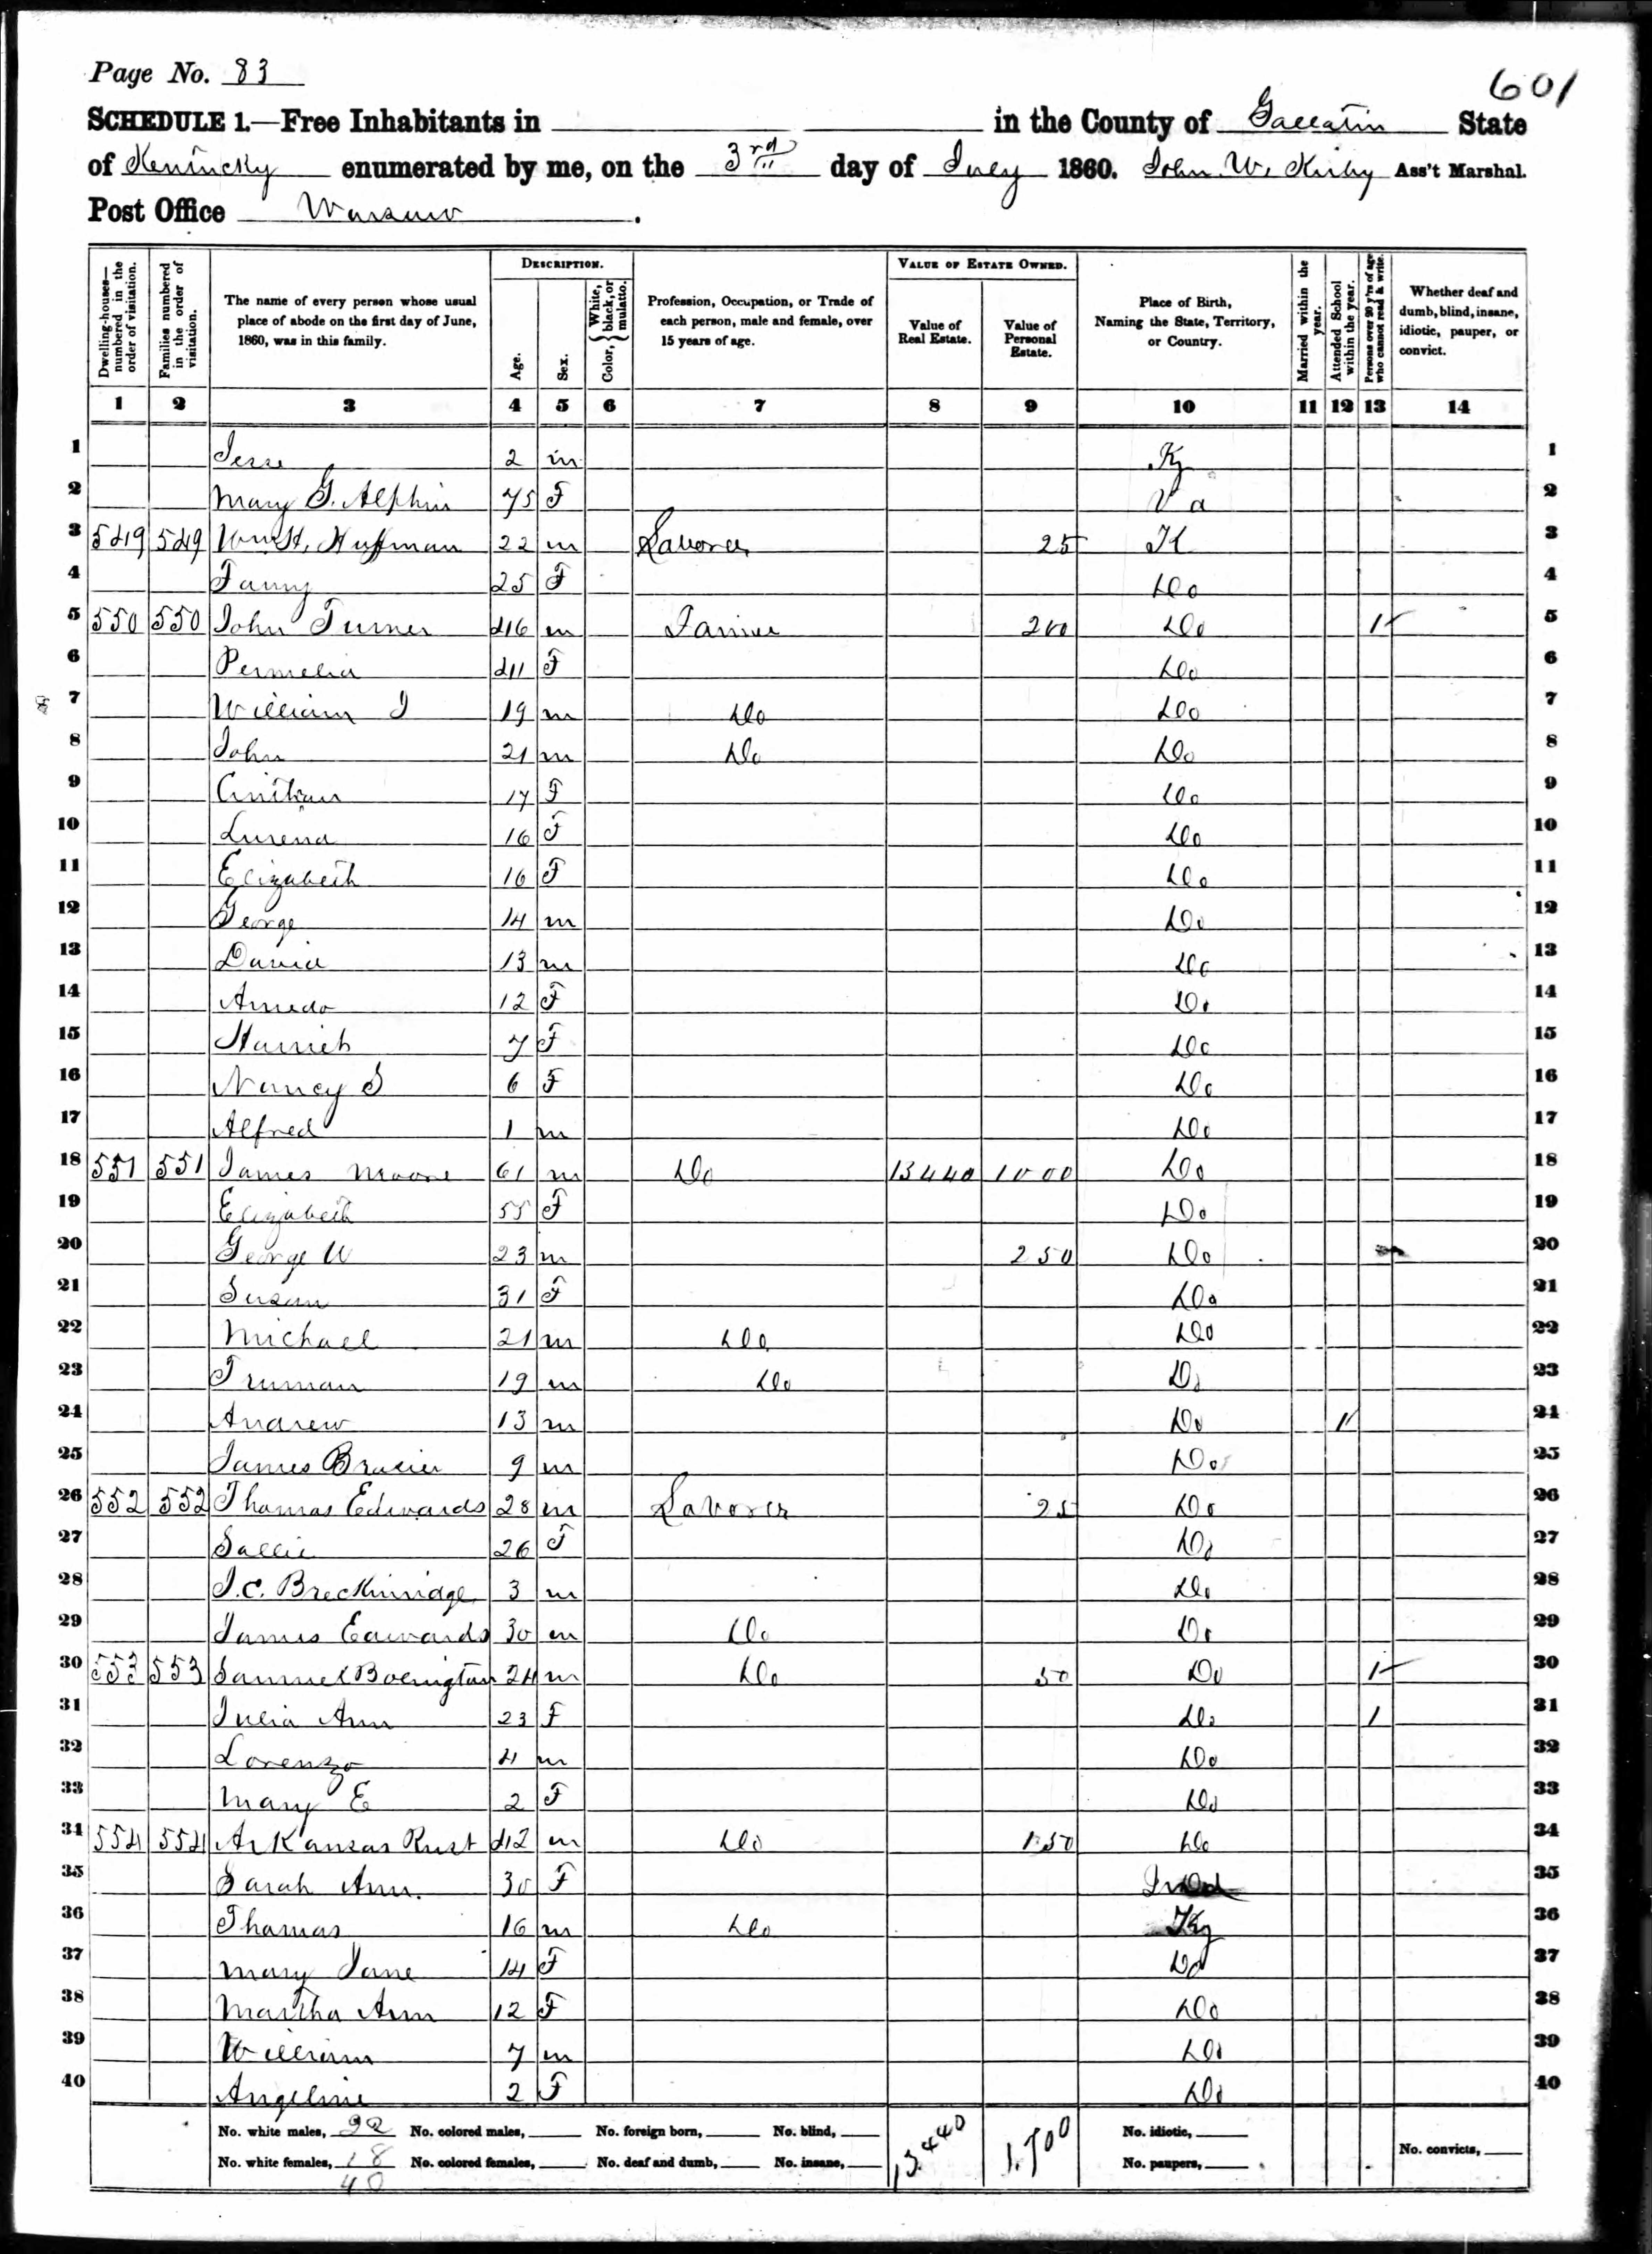 Page No. 83
601
SCHEDULE 1.—Free Inhabitants in in the County of Gallatin State
of Kentucky enumerated by me, on the 3rd day of July 1860. John W. Kirby Ass't Marshal.
Post Office Warsaw.
DESCRIPTION. VALUE OF ESTATE OWNED.
Dwelling-houses—numbered in the order of visitation. Families numbered in the order of visitation. The name of every person whose usual place of abode on the first day of June, 1860, was in this family. Age. Sex. Color, {White, black, or mulatto. Profession, Occupation, or Trade of each person, male and female, over 15 years of age. Value of Real Estate. Value of Personal Estate. Place of Birth, Naming the State, Territory, or Country. Married within the year. Attended School within the year. Persons over 20 y'rs of age who cannot read & write. Whether deaf and dumb, blind, insane, idiotic, pauper, or convict.
1 2 3 4 5 6 7 8 9 10 11 12 13 14
1 Jesse 2 m Ky 1
2 Mary G. Alphin 75 F Va 2
3 549 549 Wm H. Huffman 22 m Laborer 25 K 3
4 Fanny 25 F Do 4
5 550 550 John Turner 46 m Farmer 200 Do 1 5
6 Permelia 41 F Do 6
7 William J 19 m Do Do 7
8 John 21 m Do Do 8
9 17 F Do 9
10 Lurena 16 F Do 10
11 Elizabeth 16 F Do 11
12 George 14 m Do 12
13 David 13 m Do 13
14 12 F Do 14
15 Harriet 7 F Do 15
16 Nancy S 6 F Do 16
17 Alfred 1 m Do 17
18 551 551 James Moore 61 m Do 13440 1000 Do 18
19 Elizabeth 55 F Do 19
20 George W 23 m 250 Do 20
21 Susan 31 F Do 21
22 Michael 21 m Do Do 22
23 Truman 19 m Do Do 23
24 Andrew 13 m Do 1 24
25 James Brasier 9 m Do 25
26 552 552 Thomas Edwards 28 m Laborer 25 Do 26
27 Sallie 26 F Do 27
28 J.C. Breckinridge 3 m Do 28
29 James Edwards 30 m Do Do 29
30 553 553 Samuel 24 m Do 50 Do 1 30
31 Julia Ann 23 F Do 1 31
32 Lorenzo 4 m Do 32
33 Mary E 2 F Do 33
34 554 554 Arkansas Rust 42 m Do 150 Do 34
35 Sarah Ann. 30 F 35
36 Thomas 16 m Do Ky 36
37 Mary Jane 14 F Do 37
38 Martha Ann 12 F Do 38
39 William 7 m Do 39
40 Angeline 2 F Do 40
No. white males, 22 No. colored males, No. foreign born, No. blind, 13440 1.700 No. idiotic,
No. white females, 18 No. colored females, No. deaf and dumb, No. insane, No. paupers, No. convicts,
40